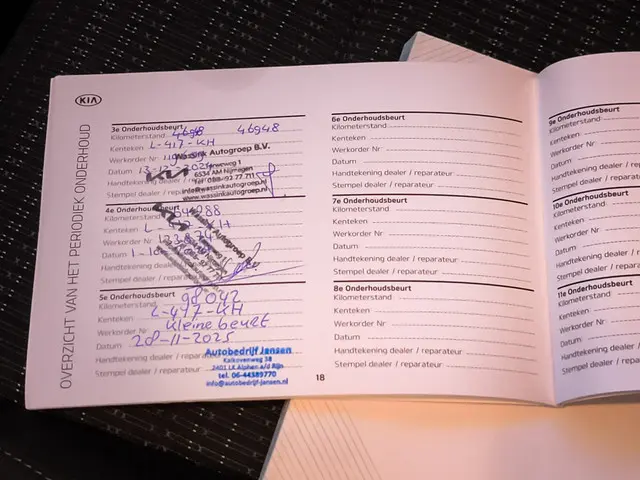 KIA
OVERZICHT VAN HET PERIODIEK ONDERHOUD
3e Onderhoudsbeurt
Kilometerstand 46948
Kenteken L-417-KH
Werkorder Nr
Datum
Handtekening dealer /
Stempel dealer /
Wassink Autogroep B.V.
6534 AM Nijmegen
info@wassinkautogroep.nl
www.wassinkautogroep.nl
4e Onderhoudsbeurt
Kilometerstand
Kenteken
Werkorder Nr
Datum
Handtekening dealer
Stempel dealer / reparateur
5e Onderhoudsbeurt
Kilometerstand 98042
Kenteken L-417-KH
Werkorder Nr Kleine beurt
Datum 28-11-2025
Handtekening dealer / reparateur
Stempel dealer / reparateur
Autobedrijf Jansen
Kalkovenweg 38
2401 LK Alphen a/d Rijn
tel. 06-44389770
info@autobedrijf-jansen.nl
6e Onderhoudsbeurt
Kilometerstand
Kenteken
Werkorder Nr
Datum
Handtekening dealer / reparateur
Stempel dealer / reparateur
7e Onderhoudsbeurt
Kilometerstand
Kenteken
Werkorder Nr
Datum
Handtekening dealer / reparateur
Stempel dealer / reparateur
8e Onderhoudsbeurt
Kilometerstand
Kenteken
Werkorder Nr
Datum
Handtekening dealer / reparateur
Stempel dealer / reparateur
18
9e Onderhoudsbeurt
Kilometerstand
Kenteken
Werkorder Nr
Datum
Handtekening dealer
Stempel dealer / repa
10e Onderhoudsbeu
Kilometerstand
Kenteken
Werkorder Nr
Datum
Handtekening deale
Stempel dealer / rep
11e Onderhoudsbe
Kilometerstand
Kenteken
Werkorder Nr
Datum
Handtekening dea
Stempel dealer /